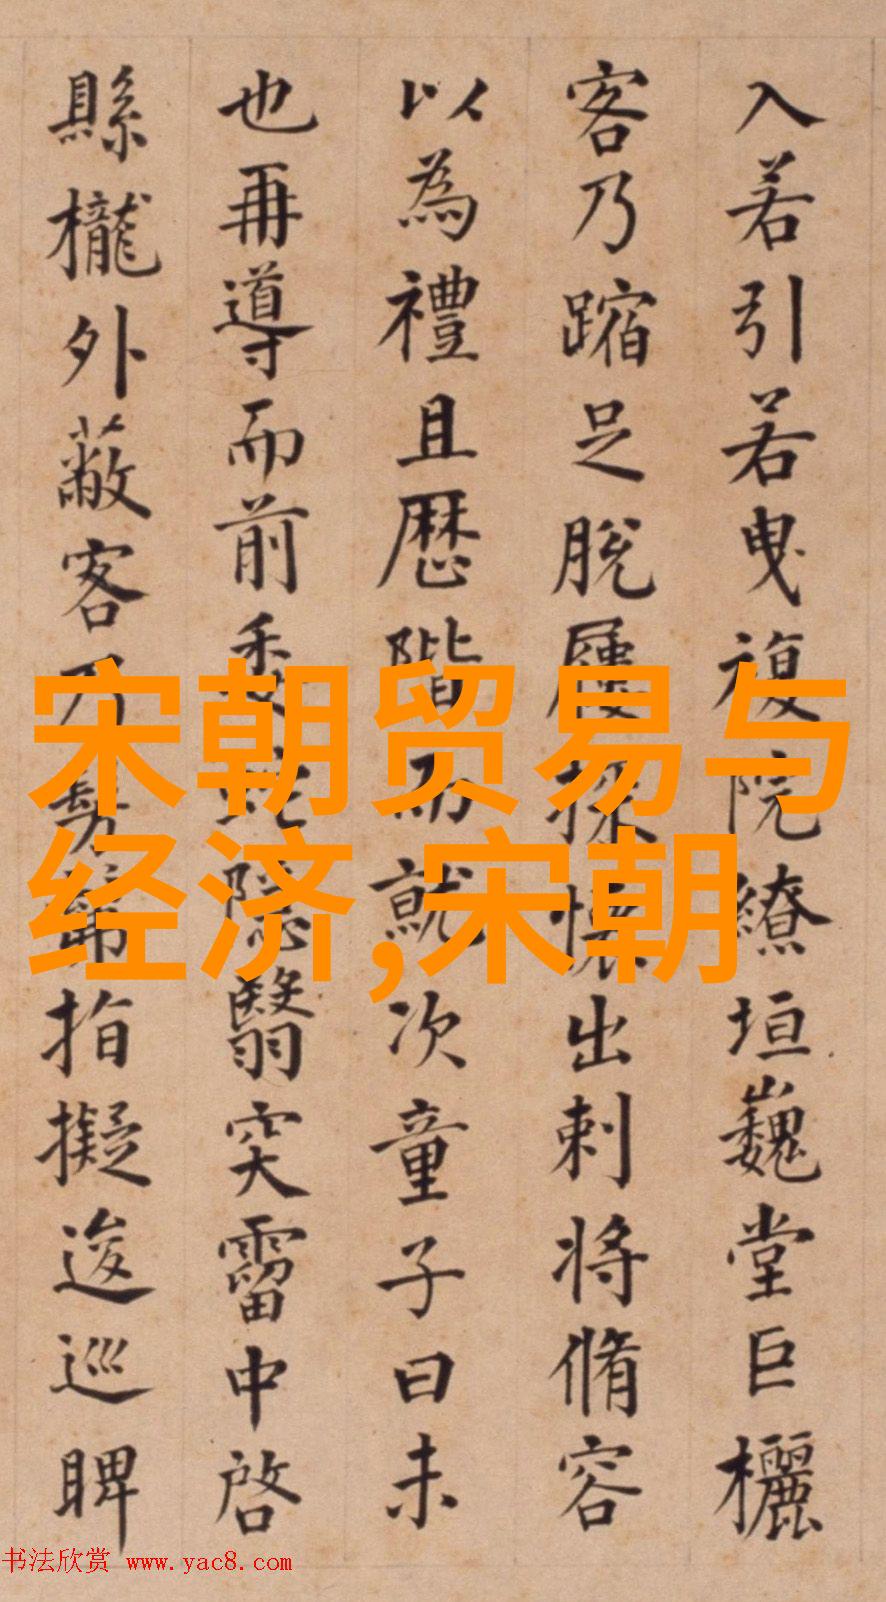 入若引若曳複院繚垣巍堂巨欐
客乃蹜足脫屨探懷出刺將脩容
以為禮且歷階而就次童子曰未
也再導而前委蛇隱翳突霤中啓
縣櫳外蔽客乃指擬逡巡睥
宋朝贸易与
经济,宋朝
书法欣赏 www.yac8.com